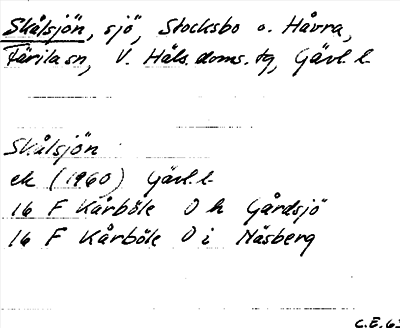 Skålsjön, sjö, Stocksbo o. Håvra,
Färila sn, V. Häls. doms. tg, Gävl. l.
Skålsjön
ek (1960) Gävl. l.
16 F Kårböle O h Gårdsjö
16 F Kårböle O i Näsberg
C.E. 63